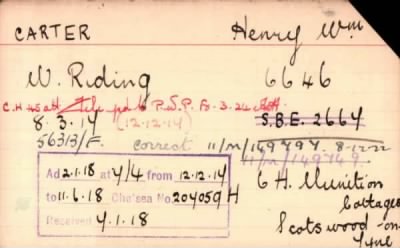 CARTER Henry Wm
W. Riding 6646
C.H. 45 att P.&.P. Fo. 3.24
8.3.17 (12.12.14) S.B.E. 2664
5631B/F. correct 11/M/149797. 8-12-22
11/M/149749
Ad 2.1.18 at 4/4 from 12.12.14
to 11.6.18 Chelsea No. 204059 H
Received 4.1.18
6 H. Munition
Cottages
Scotswood-on-
Tyne